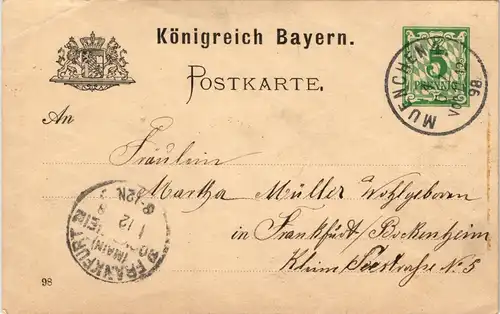 Königreich Bayern.
POSTKARTE.
5
PFENNIG
MUENCHEN
98
An
Fräulein
Martha Müller Wohlgeboren
in Frankfurt/Bockenheim
Kleine Seestraße No 5
FRANKFURT
(MAIN)
1 12
8-12N.
98